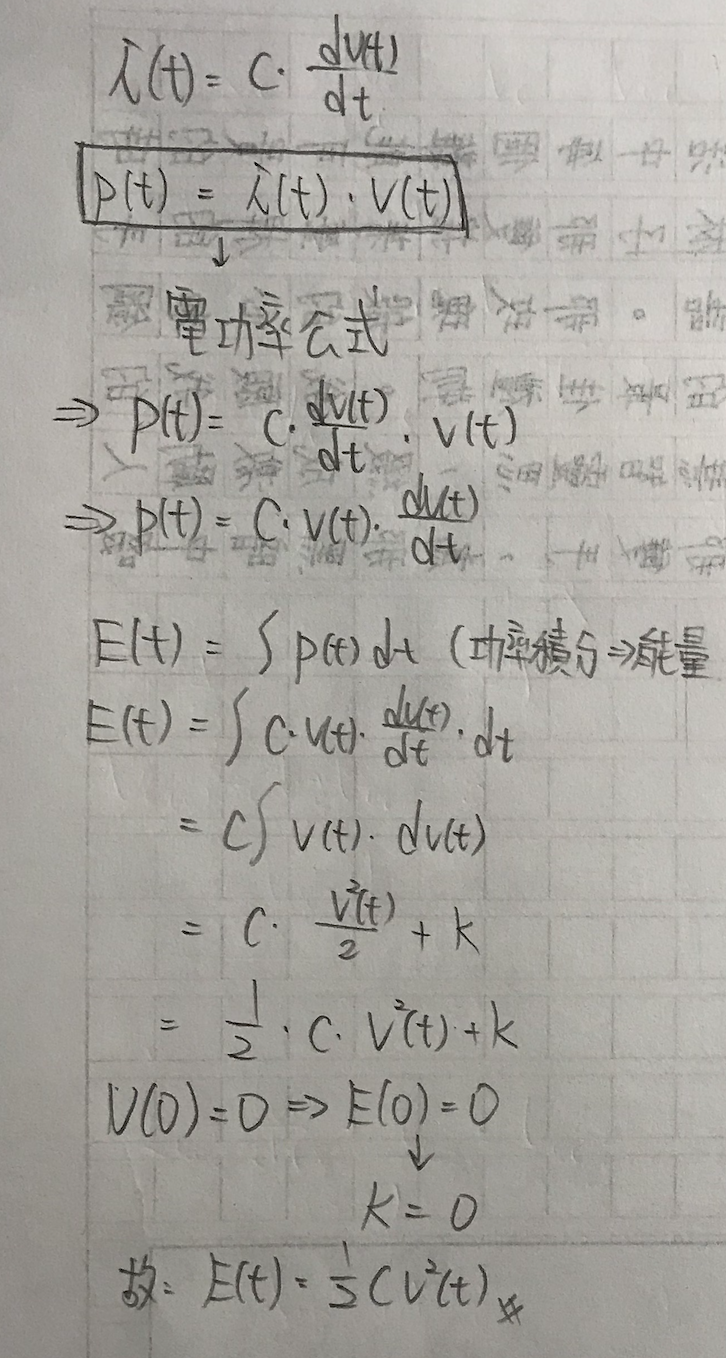 i(t) = C · dv(t)/dt
p(t) = i(t) · v(t)
↓
電功率公式
⇒ p(t) = C · dv(t)/dt · v(t)
⇒ p(t) = C · v(t) · dv(t)/dt
E(t) = ∫ p(t) dt (功率積分⇒能量
E(t) = ∫ C · v(t) · dv(t)/dt · dt
= C∫ v(t) · dv(t)
= C · v²(t)/2 + k
= 1/2 · C · v²(t) + k
V(0) = 0 ⇒ E(0) = 0
↓
k = 0
故: E(t) = 1/2 CV²(t)